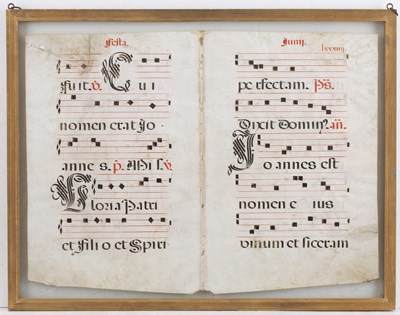 Festa.
fuit. V. Cui
nomen erat Jo
annes.
Gloria Patri
et Filio et Spiri
Junij.
perfectam. Ps.
Dixit Domin. an.
Joannes est
nomen eius
vinum et siceram